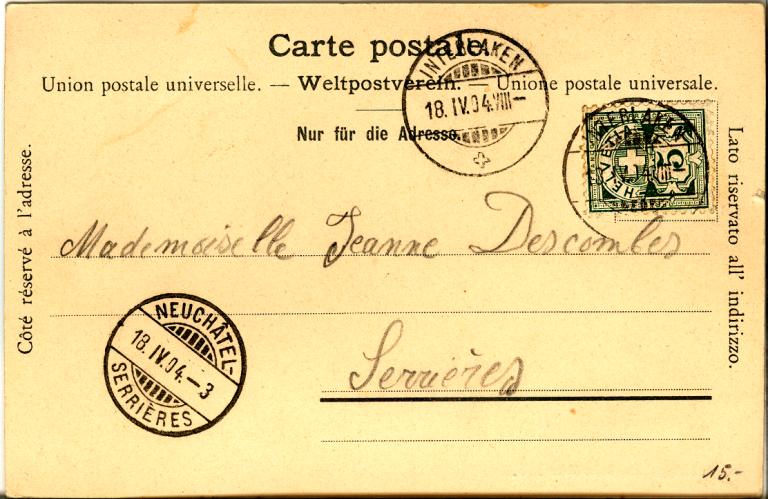 Carte postale.
Union postale universelle. — Weltpostverein. — Unione postale universale.
Nur für die Adresse.
INTERLAKEN
18.IV.04.VIII—
INTERLAKEN
HELVETIA
5
Côté réservé à l'adresse.
Lato riservato all' indirizzo.
Mademoiselle Jeanne Descombes
Serrières
NEUCHÂTEL-
18.IV.04.—3
SERRIÈRES
15.-